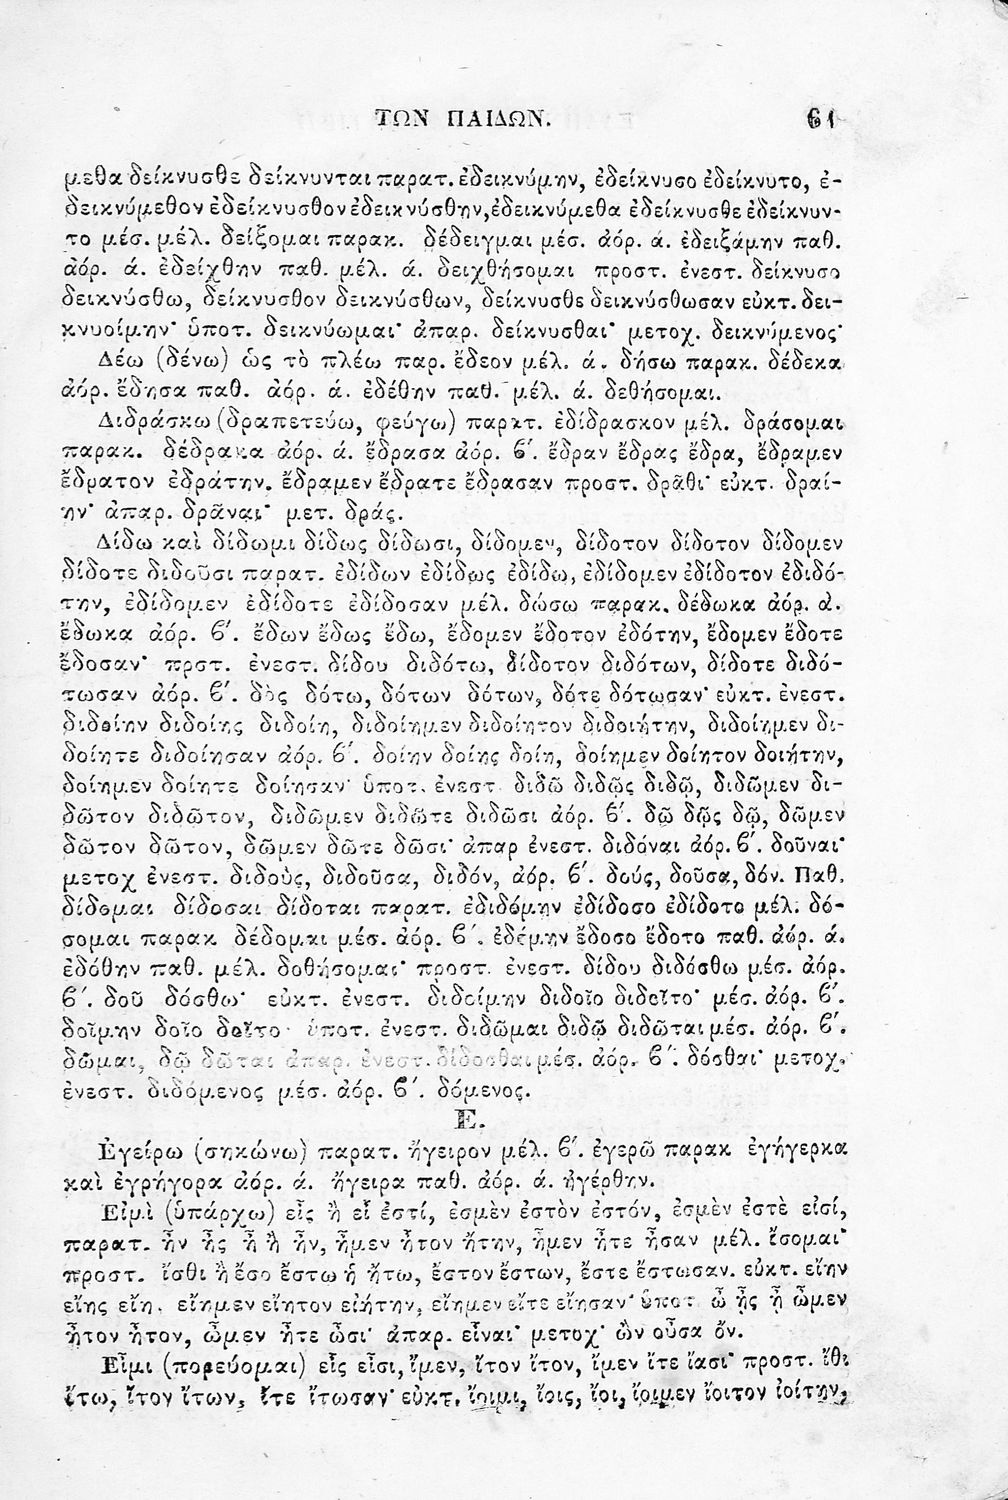 ΤΩΝ ΠΑΙΔΩΝ. 61
μεθα δείκνυσθε δείκνυνται παρατ. ἐδεικνύμην, ἐδείκνυσο ἐδείκνυτο, ἐ-
δεικνύμεθον ἐδείκνυσθον ἐδεικνύσθην, ἐδεικνύμεθα ἐδείκνυσθε ἐδείκνυν-
το μέσ. μέλ. δείξομαι παρακ. δέδειγμαι μέσ. ἀόρ. ά. ἐδειξάμην παθ.
ἀόρ. ά. ἐδείχθην παθ. μέλ. ά. δειχθήσομαι προστ. ἐνεστ. δείκνυσο
δεικνύσθω, δείκνυσθον δεικνύσθων, δείκνυσθε δεικνύσθωσαν εὐκτ. δει-
κνυοίμην· ὑποτ. δεικνύωμαι· ἀπαρ. δείκνυσθαι· μετοχ. δεικνύμενος·
Δέω (δένω) ὡς τὸ πλέω παρ. ἔδεον μέλ. ά. δήσω παρακ. δέδεκα
ἀόρ. ἔδησα παθ. ἀόρ. ά. ἐδέθην παθ. μέλ. ά. δεθήσομαι.
Διδράσκω (δραπετεύω, φεύγω) παρατ. ἐδίδρασκον μέλ. δράσομαι
παρακ. δέδρακα ἀόρ. ά. ἔδρασα ἀόρ. ϐ΄. ἔδραν ἔδρας ἔδρα, ἔδραμεν
ἔδρατον ἐδράτην. ἔδραμεν ἔδρατε ἔδρασαν προστ. δρᾶθι· εὐκτ. δραί-
ην· ἀπαρ. δρᾶναι· μετ. δράς.
Δίδω καὶ δίδωμι δίδως δίδωσι, δίδομεν, δίδοτον δίδοτον δίδομεν
δίδοτε διδοῦσι παρατ. ἐδίδων ἐδίδως ἐδίδω, ἐδίδομεν ἐδίδοτον ἐδιδό-
την, ἐδίδομεν ἐδίδοτε ἐδίδοσαν μέλ. δώσω παρακ. δέδωκα ἀόρ. ά.
ἔδωκα ἀόρ. ϐ΄. ἔδων ἔδως ἔδω, ἔδομεν ἔδοτον ἐδότην, ἔδομεν ἔδοτε
ἔδοσαν· πρστ. ἐνεστ. δίδου διδότω, δίδοτον διδότων, δίδοτε διδό-
τωσαν ἀόρ. ϐ΄. δὸς δότω, δότων δότων, δότε δότωσαν· εὐκτ. ἐνεστ.
διδοίην διδοίης διδοίη, διδοίημεν διδοίητον διδοιήτην, διδοίημεν δι-
δοίητε διδοίησαν ἀόρ. ϐ΄. δοίην δοίης δοίη, δοίημεν δοίητον δοιήτην,
δοίημεν δοίητε δοίησαν· ὑποτ. ἐνεστ. διδῶ διδῷς διδῷ, διδῶμεν δι-
δῶτον διδῶτον, διδῶμεν διδῶτε διδῶσι ἀόρ. ϐ΄. δῶ δῷς δῷ, δῶμεν
δῶτον δῶτον, δῶμεν δῶτε δῶσι· ἀπαρ ἐνεστ. διδόναι ἀόρ. ϐ΄. δοῦναι·
μετοχ ἐνεστ. διδοὺς, διδοῦσα, διδόν, ἀόρ. ϐ΄. δούς, δοῦσα, δόν. Παθ.
δίδομαι δίδοσαι δίδοται παρατ. ἐδιδόμην ἐδίδοσο ἐδίδοτο μέλ. δό-
σομαι παρακ δέδομαι μέσ. ἀόρ. ϐ΄. ἐδόμην ἔδοσο ἔδοτο παθ. ἀόρ. ά.
ἐδόθην παθ. μέλ. δοθήσομαι· προστ. ἐνεστ. δίδου διδόσθω μέσ. ἀόρ.
ϐ΄. δοῦ δόσθω· εὐκτ. ἐνεστ. διδοίμην διδοῖο διδοῖτο· μέσ. ἀόρ. ϐ΄.
δοῖμην δοῖο δοῖτο· ὑποτ. ἐνεστ. διδῶμαι διδῷ διδῶται μέσ. ἀόρ. ϐ΄.
δῶμαι, δῷ δῶται ἀπαρ. ἐνεστ. δίδοσθαι μέσ. ἀόρ. ϐ΄. δόσθαι· μετοχ.
ἐνεστ. διδόμενος μέσ. ἀόρ. ϐ΄. δόμενος.
Ε.
Ἐγείρω (σηκώνω) παρατ. ἤγειρον μέλ. ϐ΄. ἐγερῶ παρακ ἐγήγερκα
καὶ ἐγρήγορα ἀόρ. ά. ἤγειρα παθ. ἀόρ. ά. ἠγέρθην.
Εἰμὶ (ὑπάρχω) εἶς ἢ εἶ ἐστί, ἐσμὲν ἐστὸν ἐστόν, ἐσμὲν ἐστὲ εἰσί,
παρατ. ἦν ἦς ἦ ἢ ἦν, ἦμεν ἦτον ἤτην, ἦμεν ἦτε ἦσαν μέλ. ἔσομαι·
προστ. ἴσθι ἢ ἔσο ἔστω ἢ ἤτω, ἔστον ἔστων, ἔστε ἔστωσαν. εὐκτ. εἴην
εἴης εἴη. εἴημεν εἴητον εἰήτην, εἴημεν εἴτε εἴησαν· ὑποτ. ὦ ᾖς ᾖ ὦμεν
ἦτον ἦτον, ὦμεν ἦτε ὦσι· ἀπαρ. εἶναι· μετοχ· ὢν οὖσα ὄν.
Εἶμι (πορεύομαι) εἶς εἶσι, ἴμεν, ἴτον ἴτον, ἴμεν ἴτε ἴασι· προστ. ἴθι
ἴτω, ἴτον ἴτων, ἴτε ἴτωσαν· εὐκτ. ἴοιμι, ἴοις, ἴοι, ἴοιμεν ἴοιτον ἰοίτην,